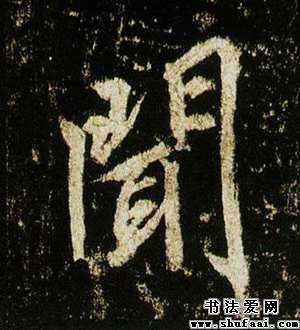 聞
书法爱网
www.shufaai.com